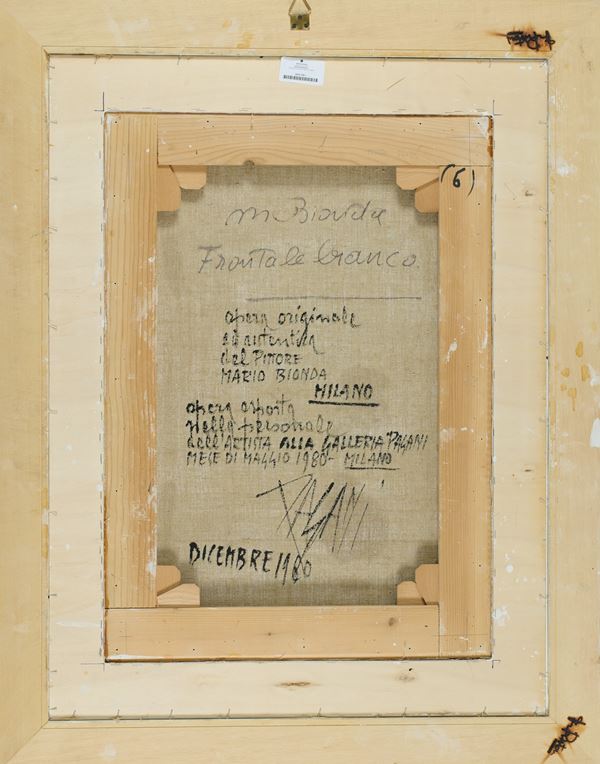 (6)
m Bionda
Frontale bianco.
opera originale
ed autentica
del PITTORE
MARIO BIONDA
MILANO
opera esposta
nella personale
dell'ARTISTA ALLA GALLERIA "PAGANI
MESE DI MAGGIO 1980 - MILANO
PAGANI
DICEMBRE 1980